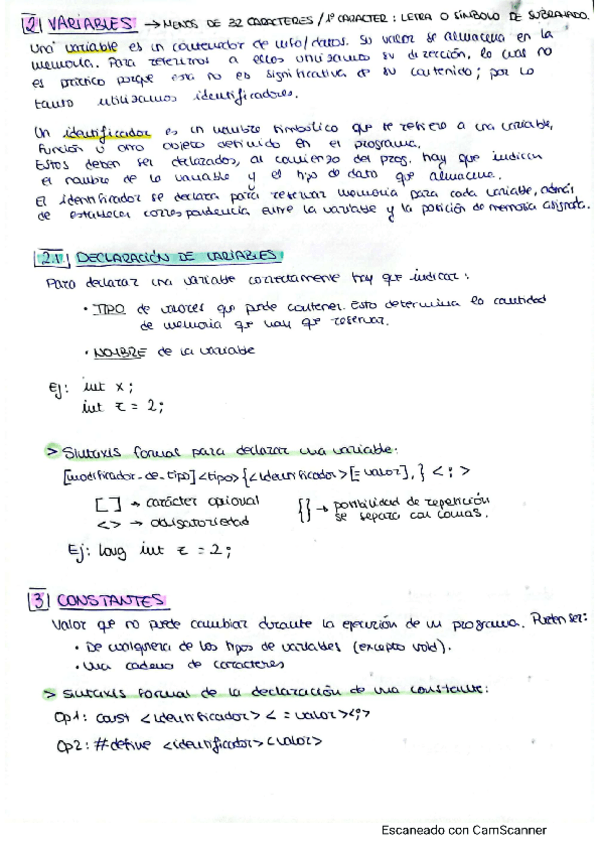 2 VARIABLES → MENOS DE 32 CARACTERES / 1º CARACTER: LETRA O SÍMBOLO DE SUBRAYADO.
Una variable es un contenedor de info/datos. Su valor se almacena en la
memoria. Para referirnos a ellos utilizamos su dirección, lo cual no
es práctico porque esta no es significativa de su contenido; por lo
tanto utilizamos identificadores.
Un identificador es un nombre simbólico que se refiere a una variable,
función u otro objeto definido en el programa.
Estos deben ser declarados, al comienzo del prog. hay que indicar
el nombre de la variable y el tipo de dato que almacena.
El identificador se declara para reservar memoria para cada variable, además
de establecer correspondencia entre la variable y la posición de memoria asignada.
2.1 DECLARACIÓN DE VARIABLES
Para declarar una variable correctamente hay que indicar:
• TIPO de valores que puede contener. Esto determina la cantidad
de memoria que hay que reservar.
• NOMBRE de la variable
Ej: int x;
int z = 2;
> Sintaxis formal para declarar una variable:
[modificador_de_tipo]<tipo>{<identificador>[= valor],}<;>
[ ] → carácter opcional
{} → posibilidad de repetición
<> → obligatoriedad
se separa con comas.
Ej: long int z = 2;
3 CONSTANTES
Valor que no puede cambiar durante la ejecución de un programa. Pueden ser:
• De cualquiera de los tipos de variables (excepto void).
• Una cadena de caracteres
> Sintaxis formal de la declaración de una constante:
Op1: const <identificador> < = valor><;>
Op2: #define <identificador><valor>
Escaneado con CamScanner